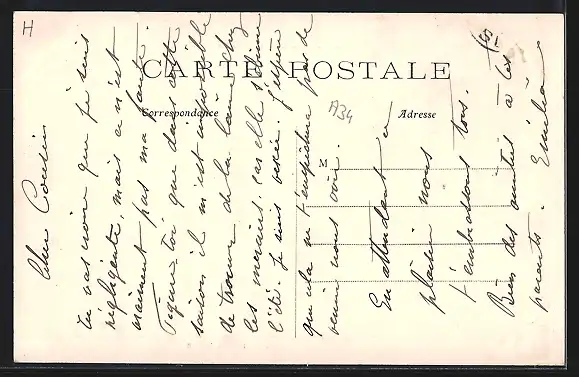 H
CARTE POSTALE
Correspondance
Adresse
M
A34
Cher Cousin
Tu vas croire que je suis
négligente, mais ce n'est
vraiment pas ma faute.
Figure toi que dans cette
saison il m'est impossible
de trouver de la laine chez
les merciers. car elle s'abime
l'été. Je suis vexée. J'espère
que cela ne t'empêchera pas de
venir nous voir.
En attendant ce
plaisir nous
t'embrassons tous.
Bien des amitiés à tes
parents.